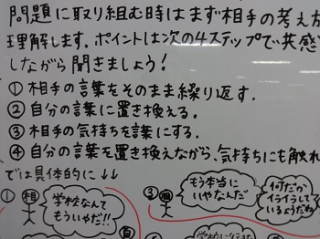 問題に取り組む時はまず相手の考え方
理解します。ポイントは次の4ステップで共感
しながら聞きましょう!
① 相手の言葉をそのまま繰り返す.
② 自分の言葉に置き換える.
③ 相手の気持ちを言葉にする.
④ 自分の言葉を置き換えながら、気持ちにも触れ
では具体的に↓↓
① 相 学校なんてもういやだ!!
③ 相 もう本当にいやなんだ
何だかイライラしているようだね